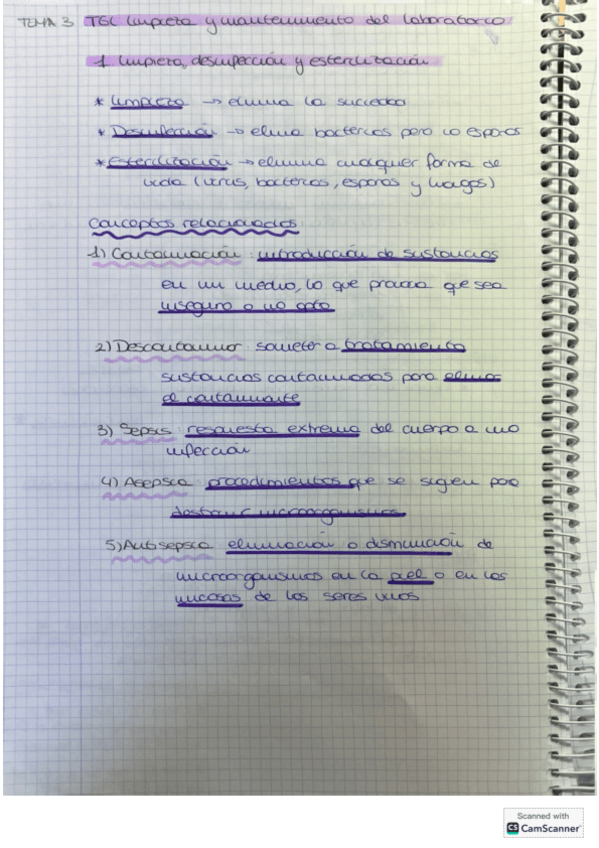 TEMA 3 TGL Limpieza y mantenimiento del laboratorio
1. Limpieza, desinfección y esterilización
* Limpieza → elimina la suciedad
* Desinfección → elimina bacterias pero no esporas
* Esterilización → elimina cualquier forma de
vida (virus, bacterias, esporas y hongos)
Conceptos relacionados
1) Contaminación: introducción de sustancias
en un medio, lo que provoca que sea
inseguro o no apto
2) Descontaminar: someter a tratamiento
sustancias contaminadas para eliminar
el contaminante
3) Sepsis: respuesta extrema del cuerpo a una
infección
4) Asepsia: procedimientos que se siguen para
destruir microorganismos
5) Antisepsia eliminación o disminución de
microorganismos en la piel o en las
mucosas de los seres vivos
Scanned with
CS CamScanner